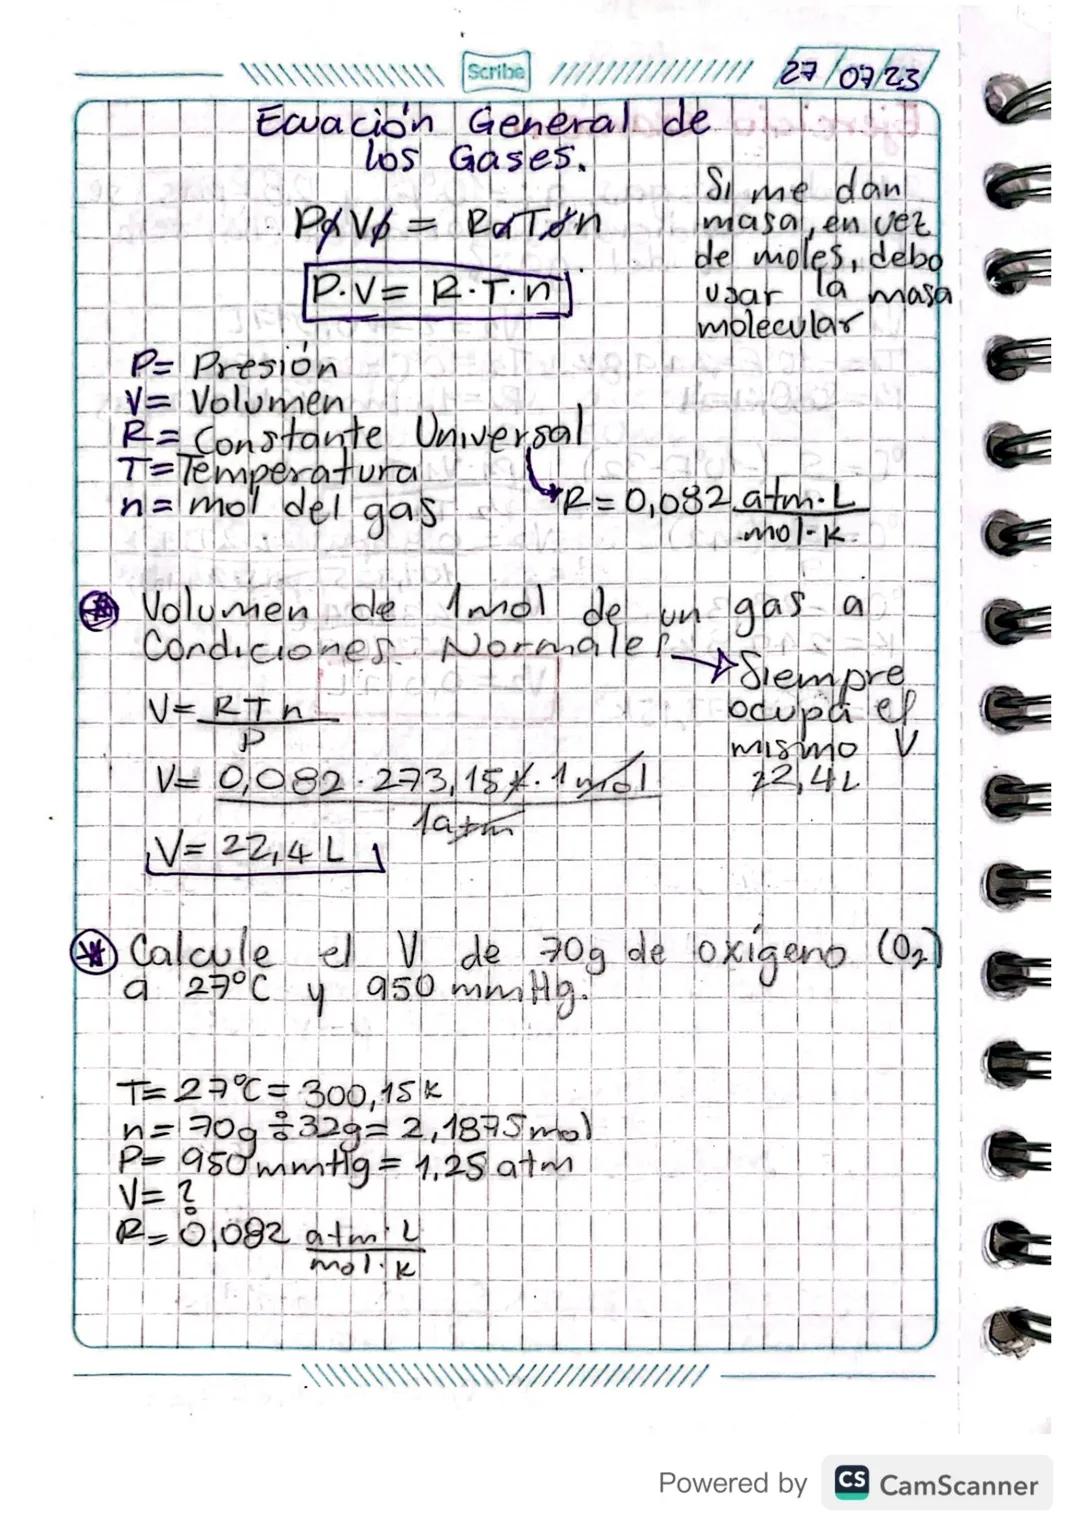 Scribe
27/07/23
Ecuación General de
los Gases.
PøVø = RøTøn
P.V= R.T.n
Si me dan
masa, en vez
de moles, debo
usar la masa
molecular
P= Presión
V= Volumen
R= Constante Universal
T= Temperatura
n= mol del gas
R= 0,082 atm.L
mol.K
Volumen de 1mol de un gas a
Condiciones Normales
Siempre
ocupa el
mismo V
22,4L
V= RTn
P
V= 0,082 . 273,15K . 1mol
1atm
V= 22,4 L
Calcule el V de 70g de oxígeno (O₂)
a 27°C y 950 mmHg.
T= 27°C = 300,15 K
n= 70g ÷ 32g= 2,1875mol
P= 950mmHg= 1,25 atm
V= ?
R= 0,082 atm.L
mol.K
Powered by CS CamScanner